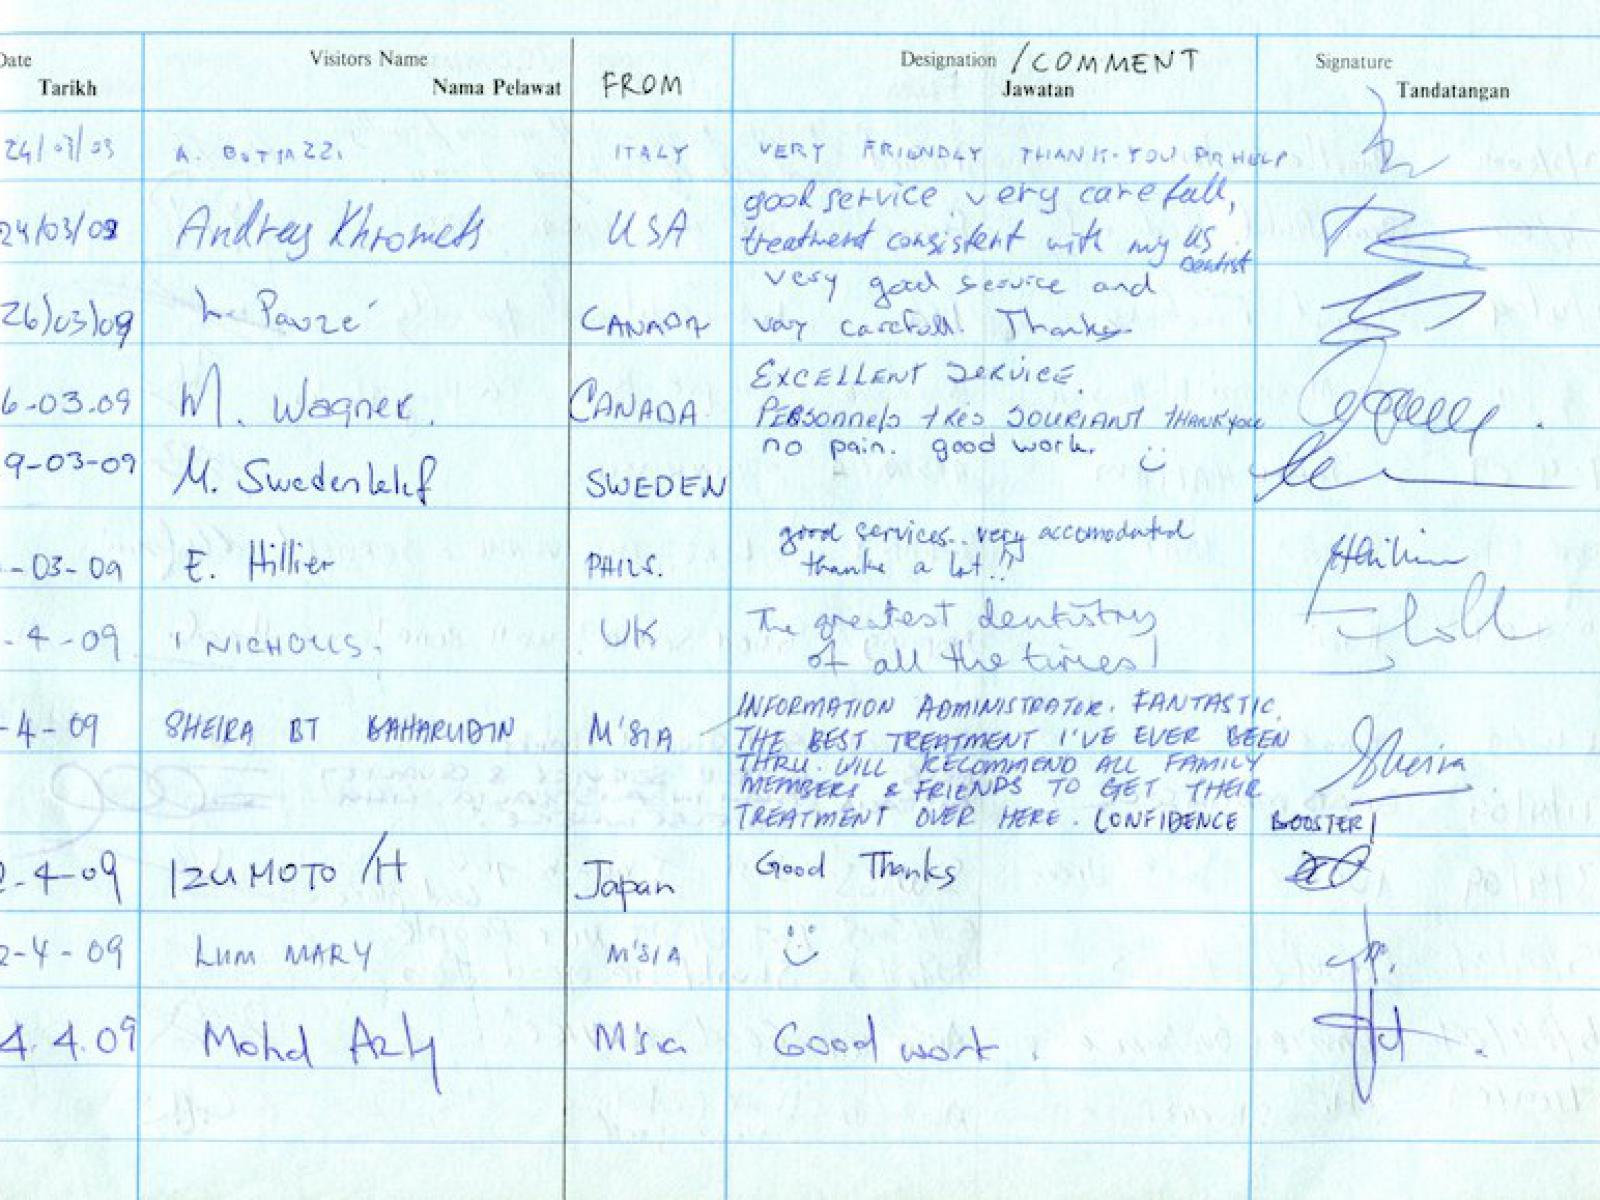 Date Visitors Name Designation /COMMENT Signature
Tarikh Nama Pelawat FROM Jawatan Tandatangan
24/03/09 A. ITALY VERY FRIENDLY THANK-YOU FOR HELP
good service very carefull,
24/03/09 Andrey Khromets USA treatment consistent with my US
dentist
very good service and
26/03/09 Pauzé CANADA vary carefull! Thanks
EXCELLENT SERVICE.
6-03.09 M. Wagner. CANADA. Personnels très souriant thank you
no pain. good work.
9-03-09 M. SWEDEN
good services.. very accomodated
-03-09 E. Hillier PHILS. thanks a lot!!
The greatest dentistry
-4-09 NICHOLLS. UK of all the times!
INFORMATION ADMINISTRATOR. FANTASTIC.
-4-09 SHEIRA BT BAHARUDIN M'SIA THE BEST TREATMENT I'VE EVER BEEN
THRU. WILL RECOMMEND ALL FAMILY Sheira
MEMBERS & FRIENDS TO GET THEIR
TREATMENT OVER HERE. CONFIDENCE BOOSTER!
2-4-09 IZUMOTO /H Japan Good Thanks
2-4-09 LUM MARY M'SIA
4.4.09 Mohd Azly M'sia Good work.